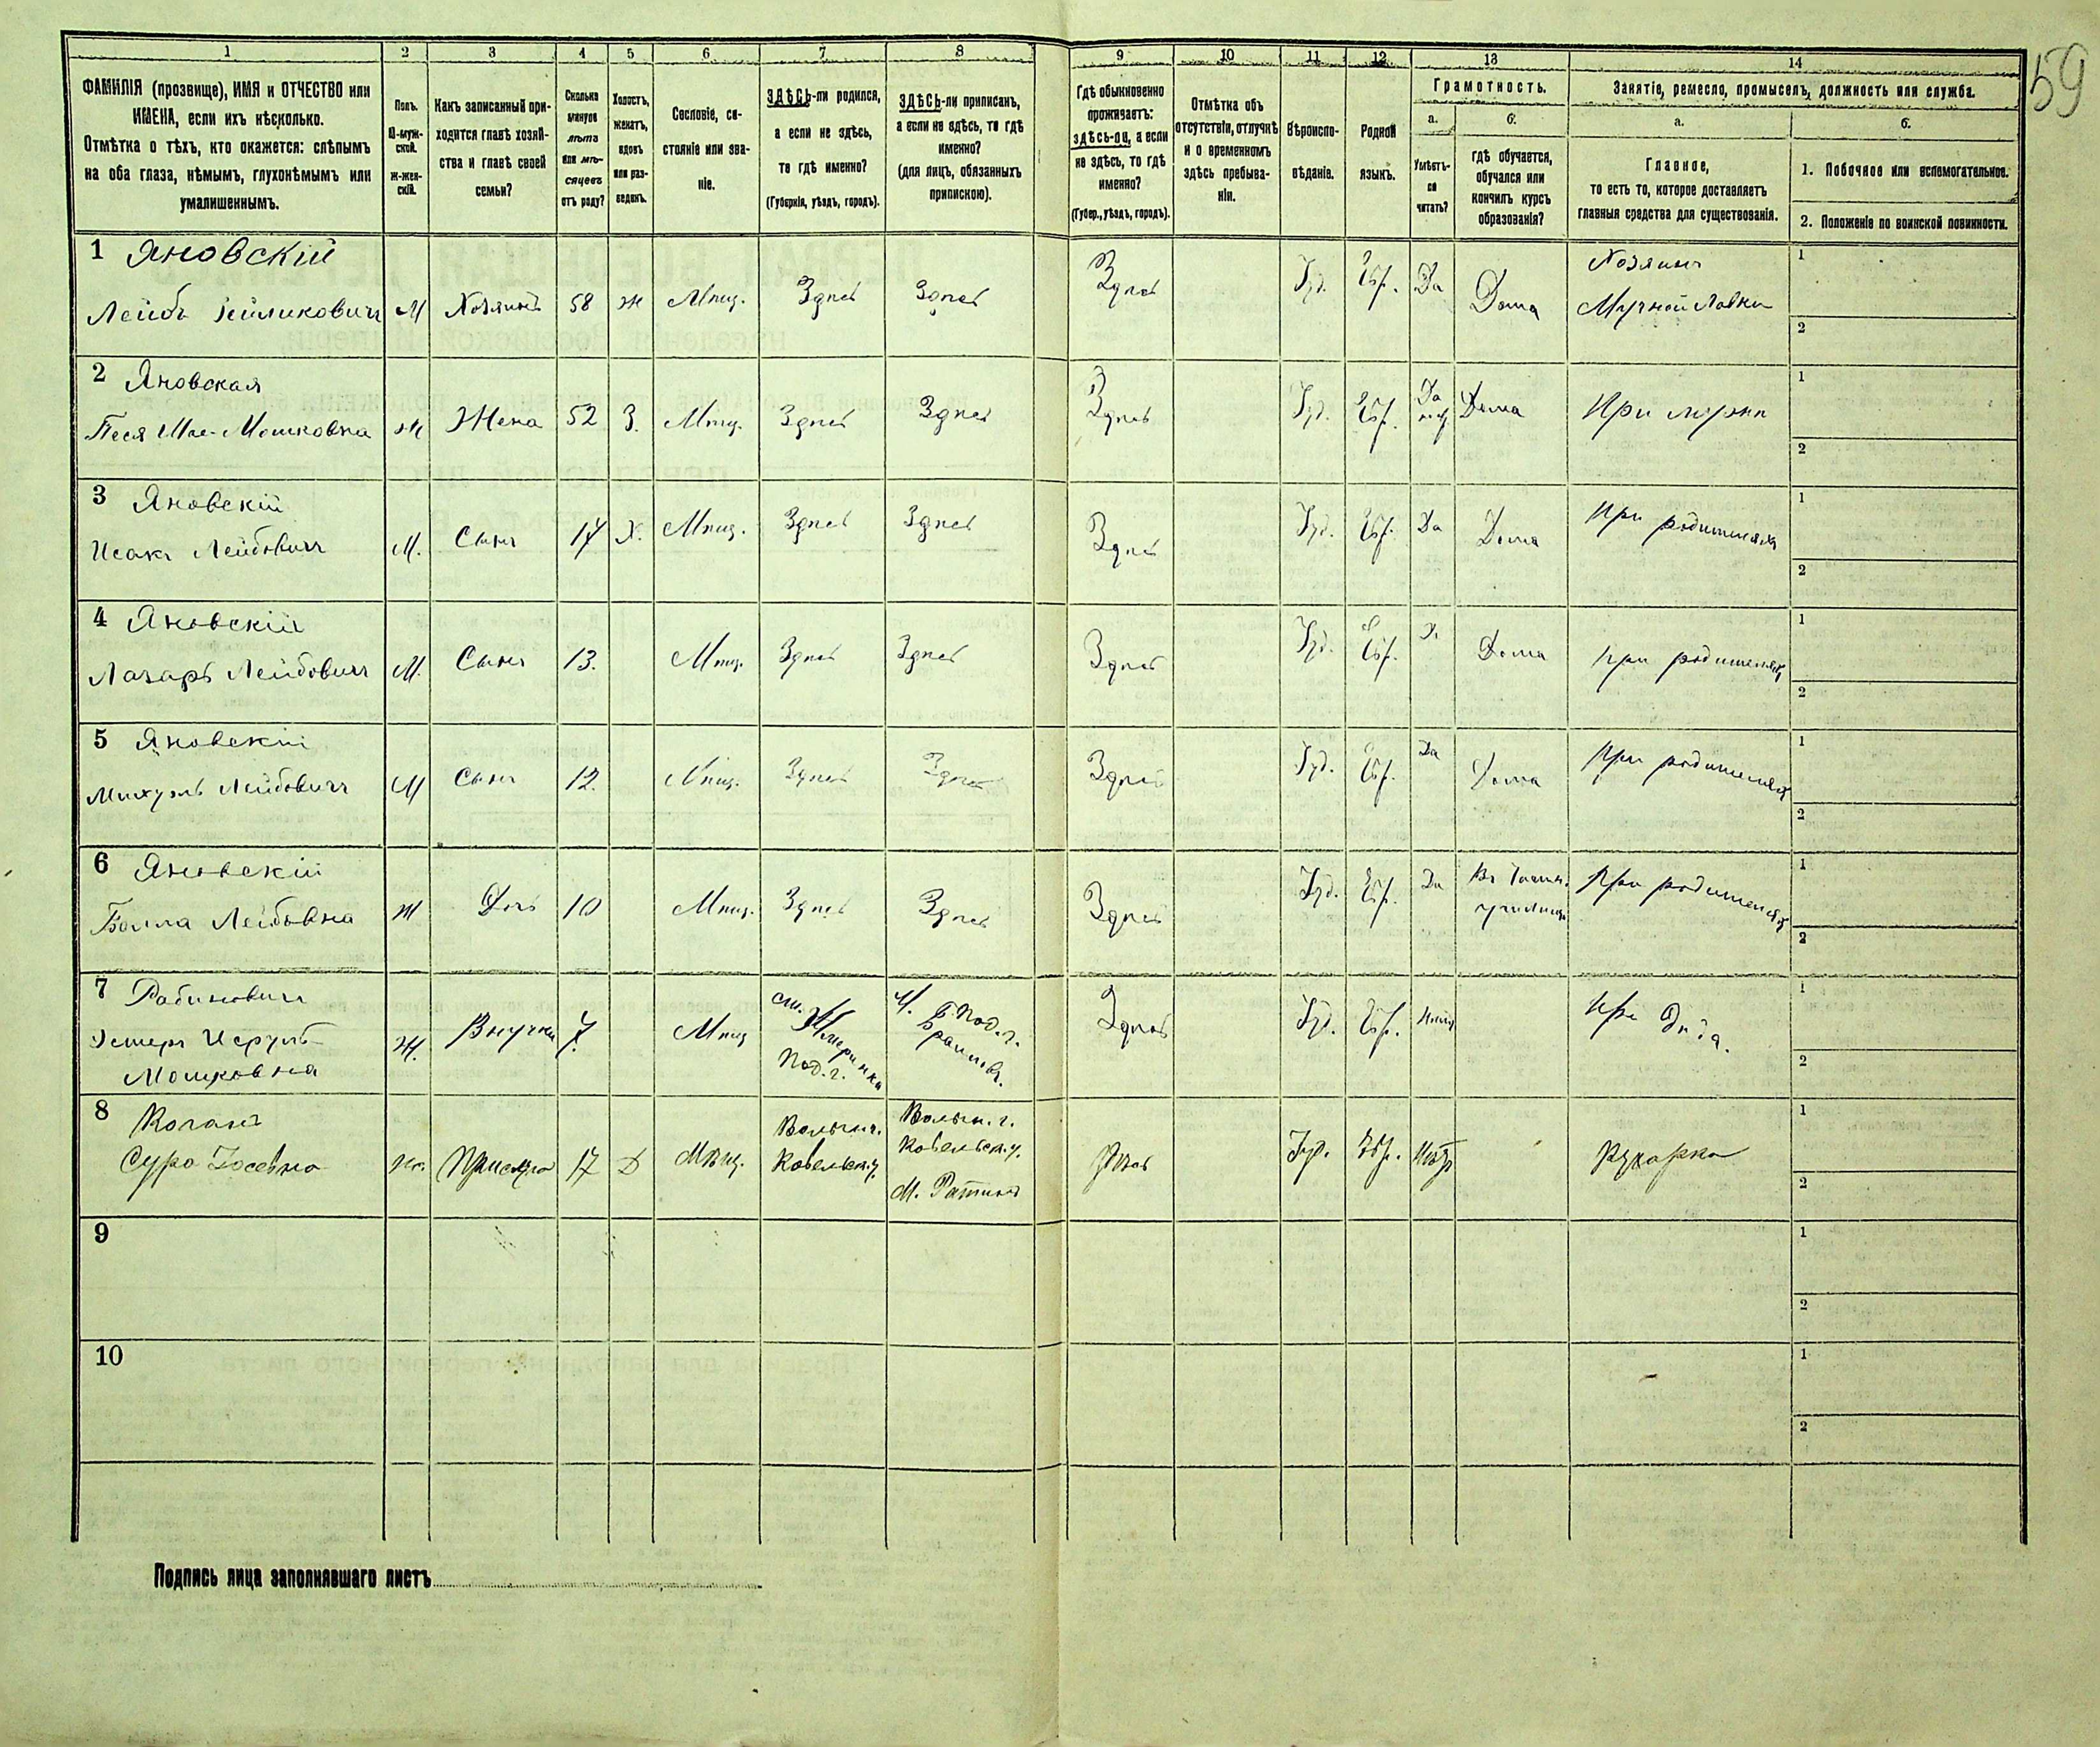 59
1 2 3 4 5 6 7 8 9 10 11 12 13 14
ФАМИЛІЯ (прозвище), ИМЯ и ОТЧЕСТВО или
ИМЕНА, если ихъ нѣсколько.
Отмѣтка о тѣхъ, кто окажется: слѣпымъ
на оба глаза, нѣмымъ, глухонѣмымъ или
умалишеннымъ.
Полъ.
М-муж-
ской.
Ж-жен-
скій.
Какъ записанный при-
ходится главѣ хозяй-
ства и главѣ своей
семьи?
Сколько
минуло
лѣтъ
или мѣ-
сяцевъ
отъ роду?
Холостъ,
женатъ,
вдовъ
или раз-
веденъ.
Сословіе, со-
стояніе или зва-
ніе.
ЗДѢСЬ-ли родился,
а если не здѣсь,
то гдѣ именно?
(Губернія, уѣздъ, городъ).
ЗДѢСЬ-ли приписанъ,
а если не здѣсь, то гдѣ
именно?
(для лицъ, обязанныхъ
припискою).
Гдѣ обыкновенно
проживаетъ:
здѣсь-ли, а если
не здѣсь, то гдѣ
именно?
(Губер., уѣздъ, городъ).
Отмѣтка объ
отсутствіи, отлучкѣ
и о временномъ
здѣсь пребыва-
ніи.
Вѣроиспо-
вѣданіе.
Родной
языкъ.
Грамотность.
а.
Умѣетъ-
ли
читать?
б.
гдѣ обучается,
обучался или
кончилъ курсъ
образованія?
Занятіе, ремесло, промыселъ, должность или служба.
а.
Главное,
то есть то, которое доставляетъ
главныя средства для существованія.
б.
1. Побочное или вспомогательное.
2. Положеніе по воинской повинности.
1 Яновскій
Лейбъ М Хозяинъ 58 ж Мѣщ. Здѣсь Здѣсь Здѣсь Іуд. Евр. Да Дома Хозяинъ
Мучной Лавки
1
2
2 Яновская
Песя Мошковна ж Жена 52 З. Мѣщ. Здѣсь Здѣсь Здѣсь Іуд. Евр. Да Дома При мужѣ
1
2
3 Яновскій
Исакъ Лейбовичъ М. Сынъ 17 Х. Мѣщ. Здѣсь Здѣсь Здѣсь Іуд. Евр. Да Дома При родителяхъ
1
2
4 Яновскій
Лазарь Лейбовичъ М. Сынъ 13. Мѣщ. Здѣсь Здѣсь Здѣсь Іуд. Евр. Да Дома При родителяхъ
1
2
5 Яновскій
Михуэль Лейбовичъ М Сынъ 12. Мѣщ. Здѣсь Здѣсь Здѣсь Іуд. Евр. Да Дома При родителяхъ
1
2
6 Яновскій
Лейбовна ж Дочь 10 Мѣщ. Здѣсь Здѣсь Здѣсь Іуд. Евр. Да Въ училищѣ При родителяхъ
1
2
7 Рабиновичъ
Эстеръ Исруль-
Мошковна Ж. Внучка 7. Мѣщ ст. Жмеринка
Под. г. М. Браиловъ.
Под. г. Здѣсь Іуд. Евр. При дѣдѣ.
1
2
8 Коганъ
Сура Іосевна ж. Прислуга 17 Д Мѣщ. Волын.
Ковельск. у. Волын. г.
Ковельск. у.
М. Ратинъ Здѣсь Іуд. Евр. Нѣтъ Кухарка
1
2
9
1
2
10
1
2
Подпись лица заполнявшаго листъ